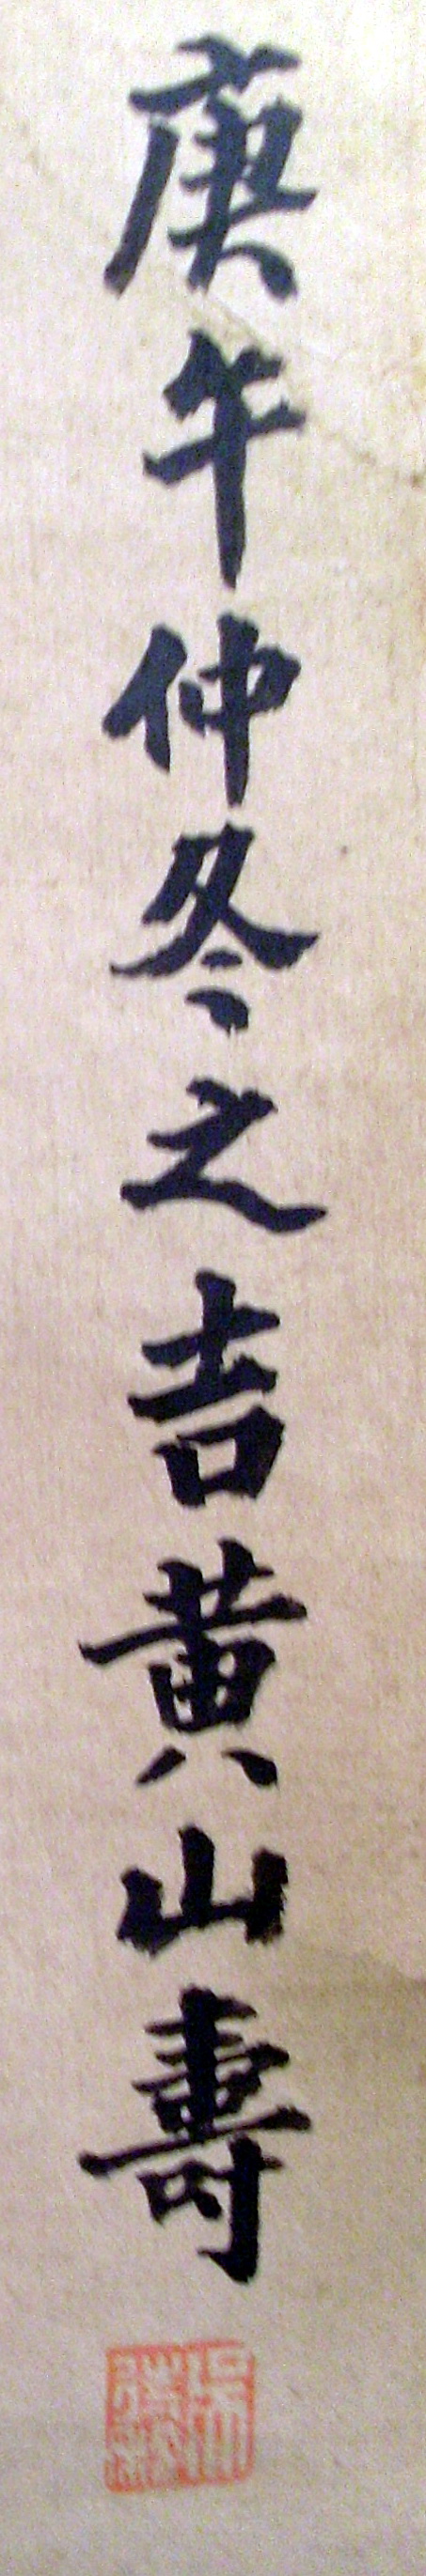 庚午仲冬之吉黄山壽